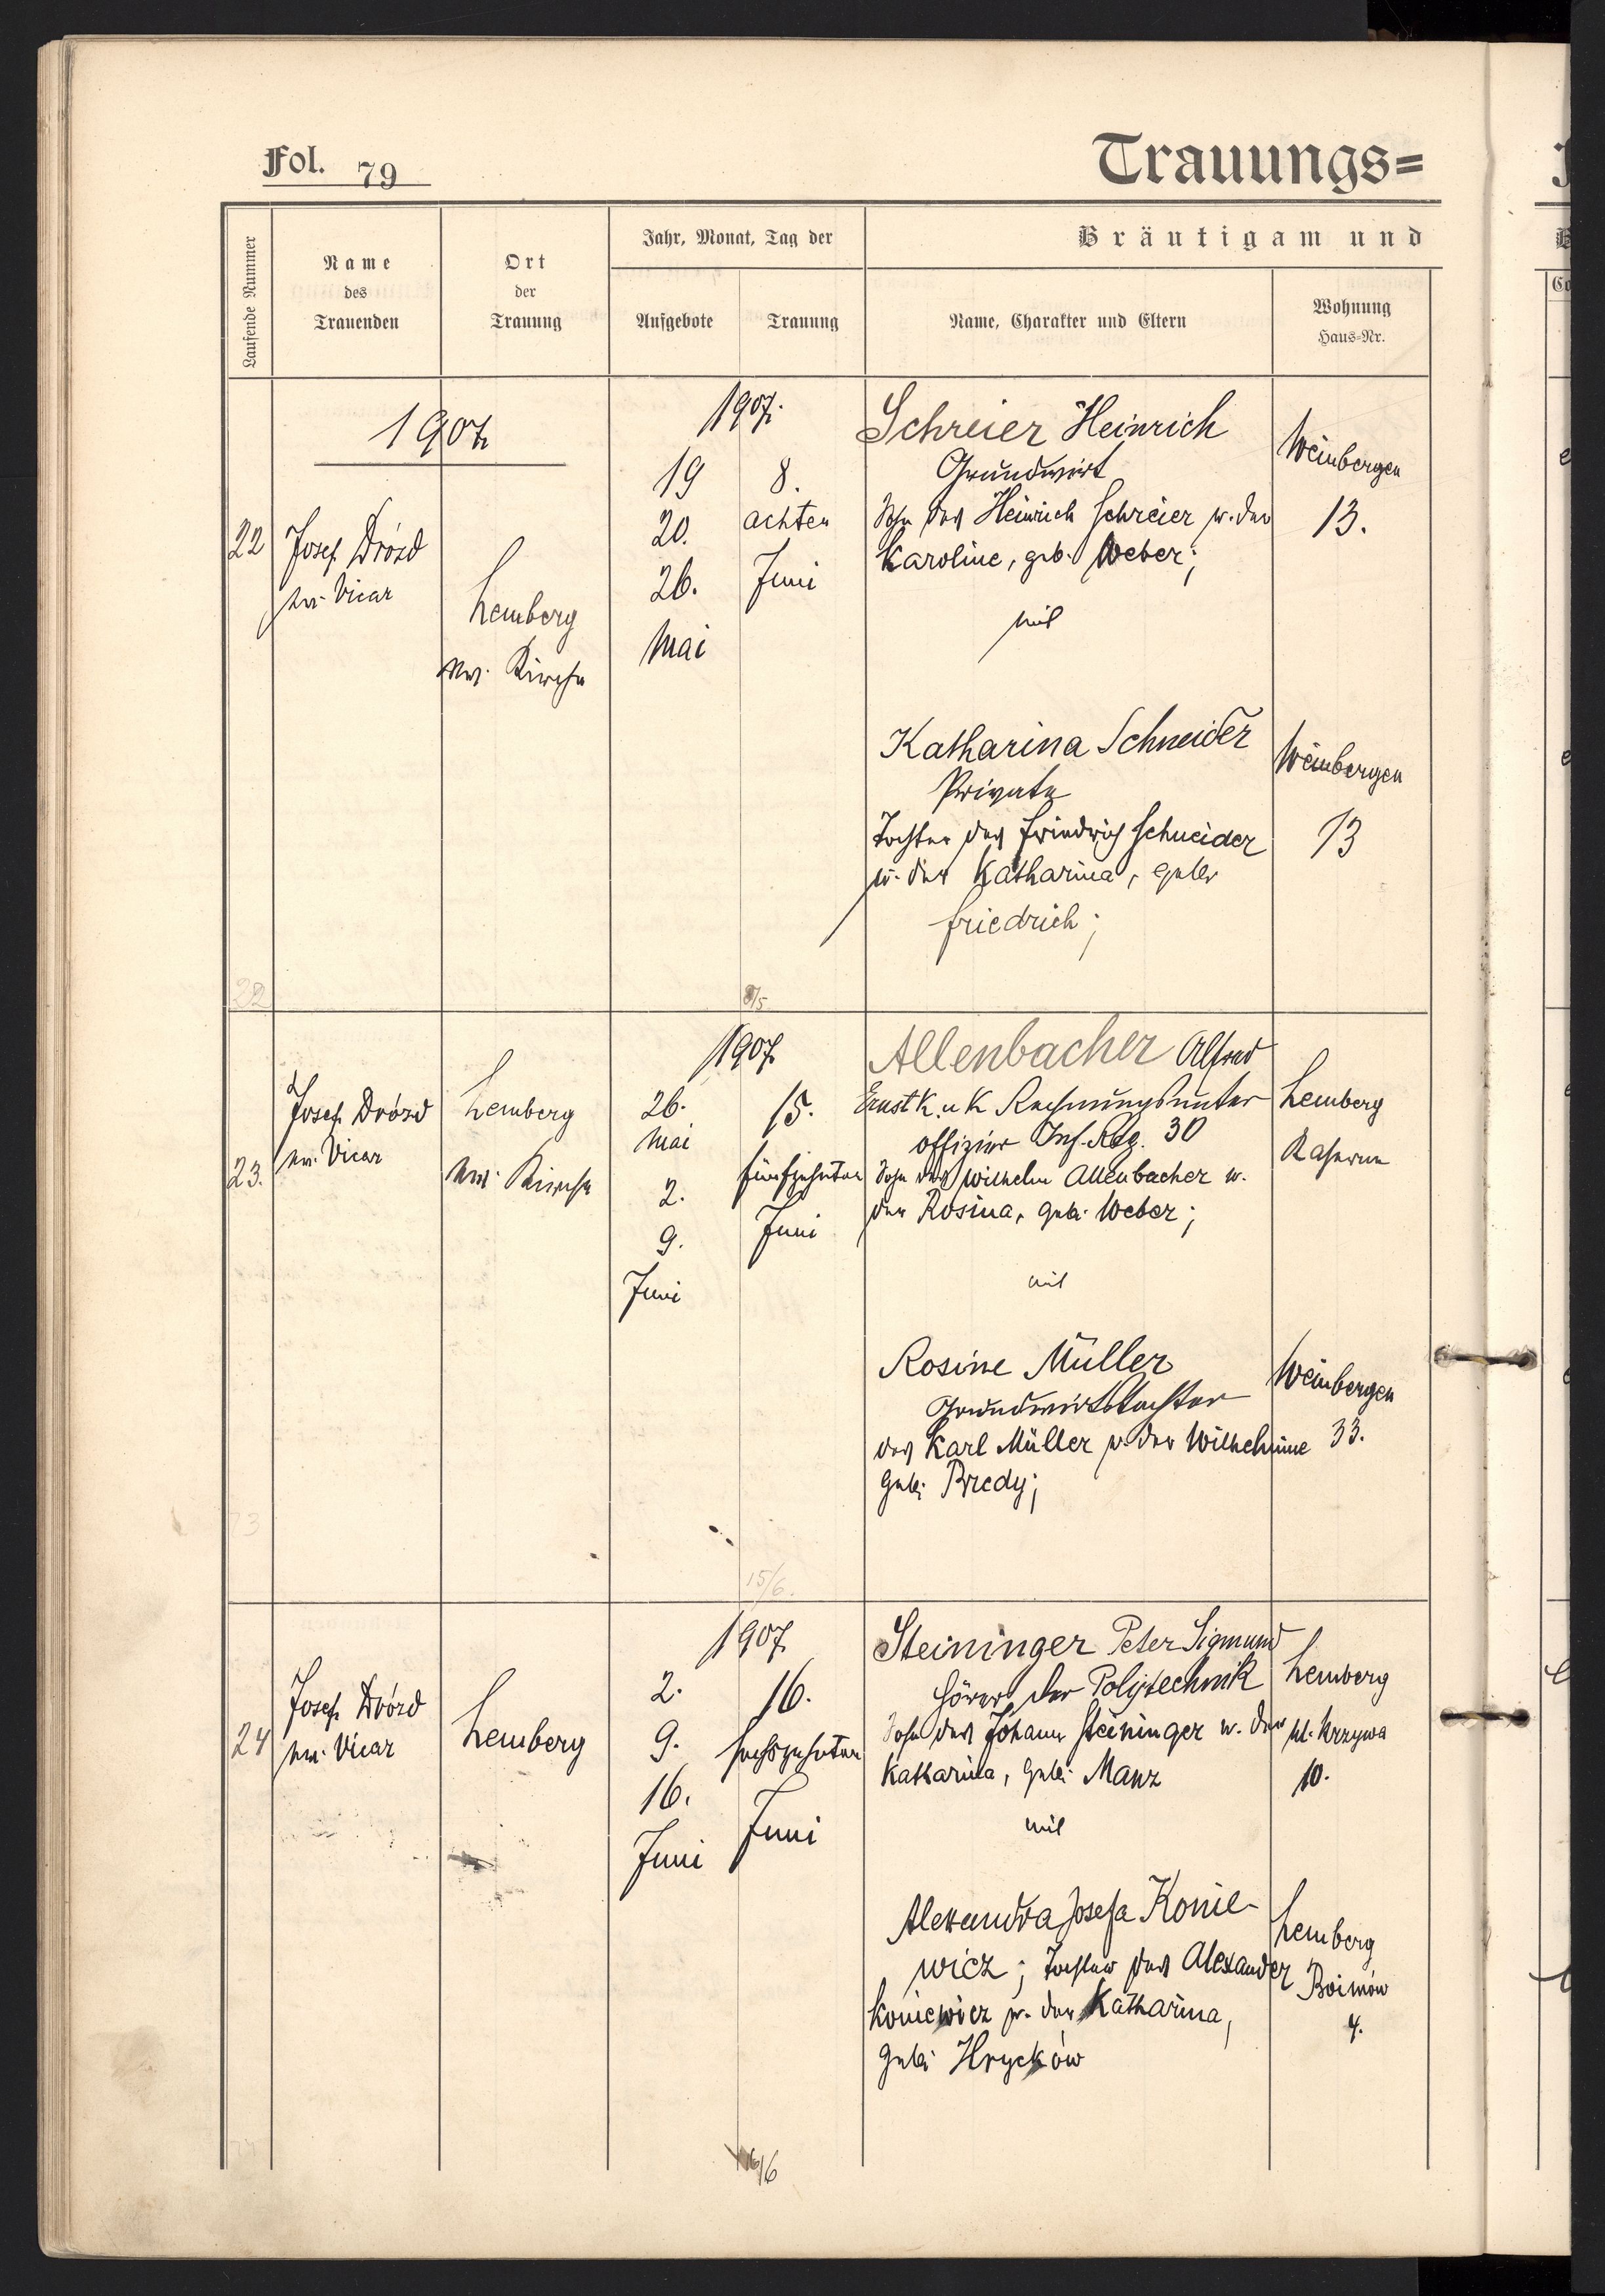 Fol. 79
Trauungs=
Laufende Nummer
Name
des
Trauenden
Ort
der
Trauung
Jahr, Monat, Tag der
Aufgebote
Trauung
Bräutigam und
Name, Charakter und Eltern
Wohnung
Haus=Nr.
1907
22
Josef Drózd
ev. Vicar
Lemberg
ev. Kirche
1907.
19
20.
26.
Mai
8.
achten
Juni
Schreier Heinrich
Grundwirt
Sohn des Heinrich Schreier u. der
Karoline, geb. Weber;
mit
Weinbergen
13.
Katharina Schneider
Private
Tochter des Friedrich Schneider
u. der Katharina, geb.
Friedrich;
Weinbergen
13
22
8/5
23.
Josef Drózd
ev. Vicar
Lemberg
ev. Kirche
1907
26.
Mai
2.
9.
Juni
15.
fünfzehnten
Juni
Allenbacher Alfred
Ernst K. u K Rechnungsunter
offizier Inf. Reg. 30
Sohn des Wilhelm Allenbacher u.
der Rosina, geb. Weber;
mit
Lemberg
Kaserne
Rosine Müller
Grundwirtstochter
des Karl Müller u. der Wilhelmine
geb. Bredy;
Weinbergen
33.
15/6.
24
Josef Drózd
ev. Vicar
Lemberg
1907
2.
9.
16.
Juni
16.
sechszehnten
Juni
Steininger Peter Sigmund
Hörer der Polytechnik
Sohn des Johann Steininger u. der
Katharina, geb. Manz
mit
Lemberg
ul. Krzywa
10.
Alexandra Josefa Konie-
wicz; Tochter des Alexander
Koniewicz u. der Katharina,
geb. Hryckow
Lemberg
Boimów
4.
16/6